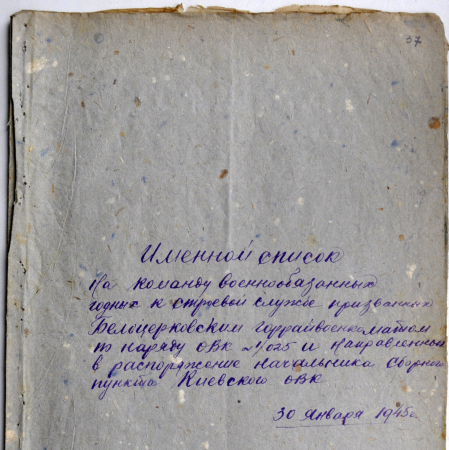 37
Именной список
На команду военнообязанных
годных к строевой службе призванных
Белоцерковским горрайвоенкоматом
по наряду ОВК 24025 и направленной
в распоряжение начальника Сборного
пункта Киевского ОВК
30 января 1945г.